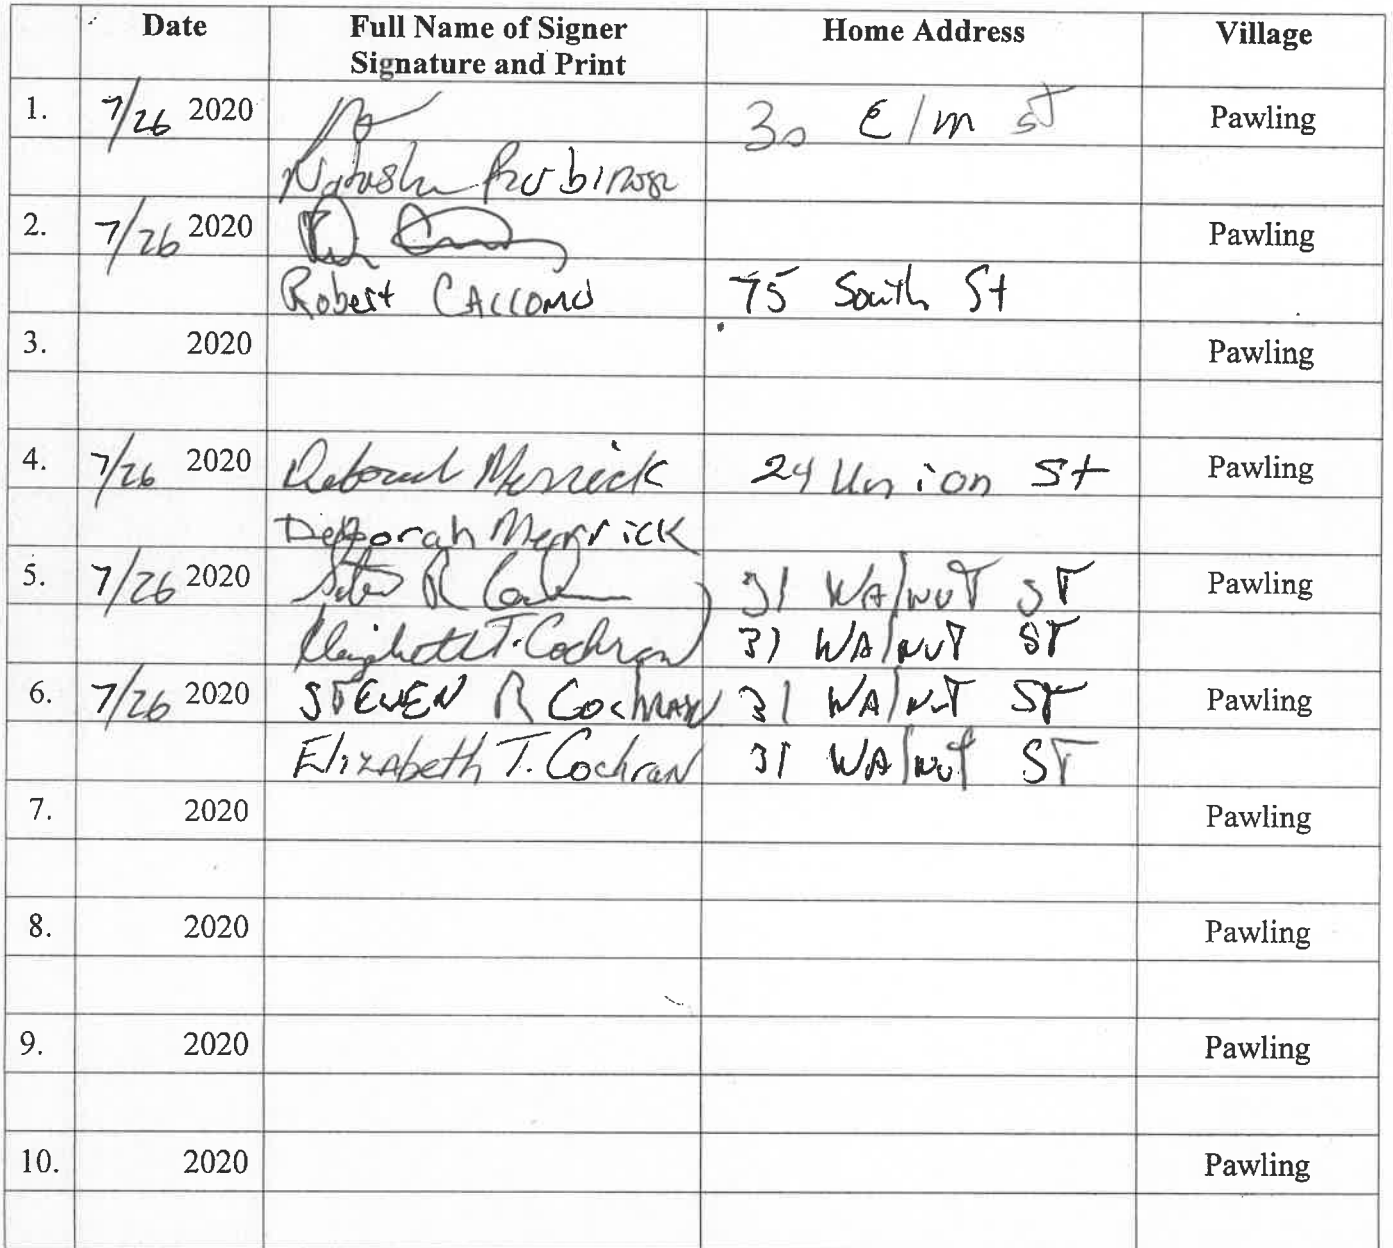 Date Full Name of Signer Home Address Village
Signature and Print
1. 7/26 2020 30 Elm ST Pawling
Natasha
2. 7/26 2020 Pawling
Robert 75 South St
3. 2020 Pawling
4. 7/26 2020 Deborah Merrick 24 Union St Pawling
Deborah Merrick
5. 7/26 2020 31 WAlnuT ST Pawling
Elizabeth T. Cochran 31 WAlnuT ST
6. 7/26 2020 STEVEN R Cochran 31 WAlnuT ST Pawling
Elizabeth T. Cochran 31 WAlnut ST
7. 2020 Pawling
8. 2020 Pawling
9. 2020 Pawling
10. 2020 Pawling